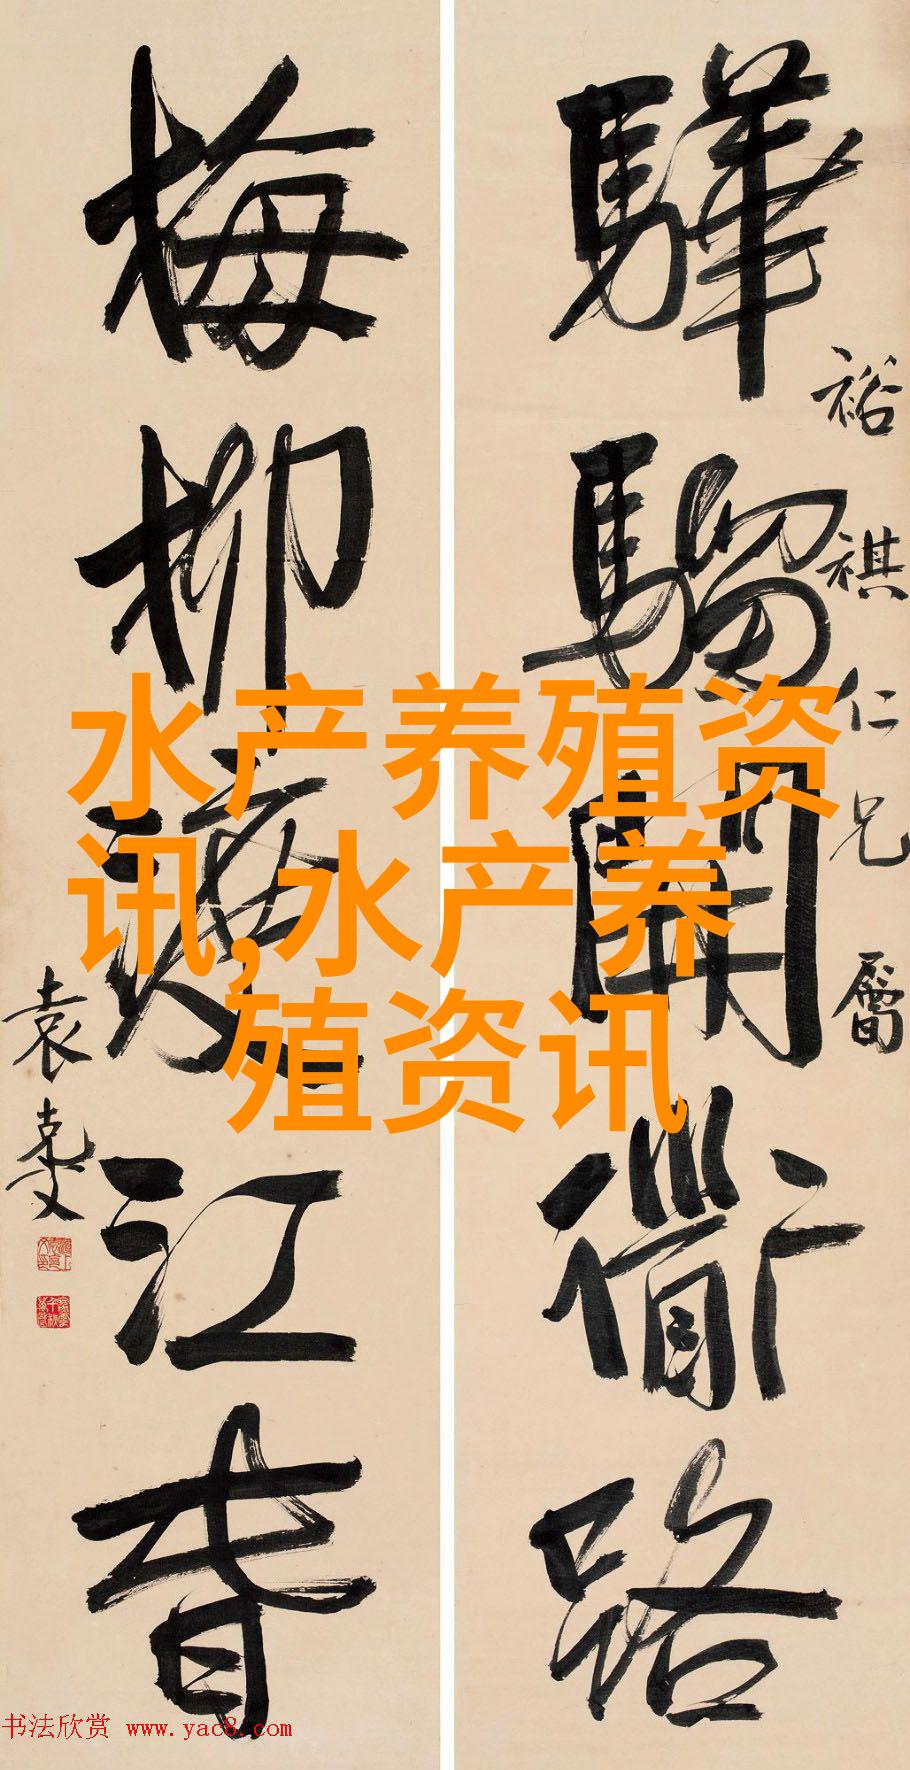 驊騮開衜路
裕祺仁兄屬
梅柳渡江春
袁克文
水产养殖资
讯,水产养
殖资讯
书法欣赏 www.yac8.com